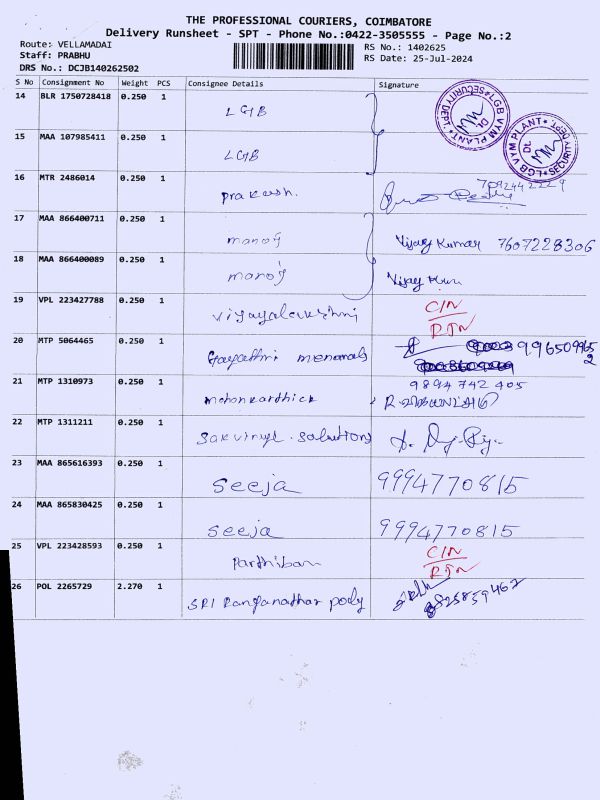 THE PROFESSIONAL COURIERS, COIMBATORE
Delivery Runsheet - SPT - Phone No.:0422-3505555 - Page No.:2
Route: VELLAMADAI
RS No.: 1402625
Staff: PRABHU
RS Date: 25-Jul-2024
DRS No.: DCJB140262502
S No Consignment No Weight PCS Consignee Details Signature
14 BLR 1750728418 0.250 1 LGB
LGB VYM PLANT SECURITY DEPT.
15 MAA 107985411 0.250 1 LGB
LGB VYM PLANT SECURITY DEPT.
16 MTR 2486014 0.250 1 prakash. 7092442229
17 MAA 866400711 0.250 1 manoj Vijay Kumar 7607228306
18 MAA 866400089 0.250 1 manoj Vijay
19 VPL 223427788 0.250 1 vijayalakshmi C/N
RTN
20 MTP 5064465 0.250 1 Gayathri 9965099652
21 MTP 1310973 0.250 1 mohankarthick 9894742405
22 MTP 1311211 0.250 1 Sakvinyl. Solutions
23 MAA 865616393 0.250 1 Seeja 9994770815
24 MAA 865830425 0.250 1 Seeja 9994770815
25 VPL 223428593 0.250 1 Parthiban C/N
RTN
26 POL 2265729 2.270 1 SRI Ranganathar poly